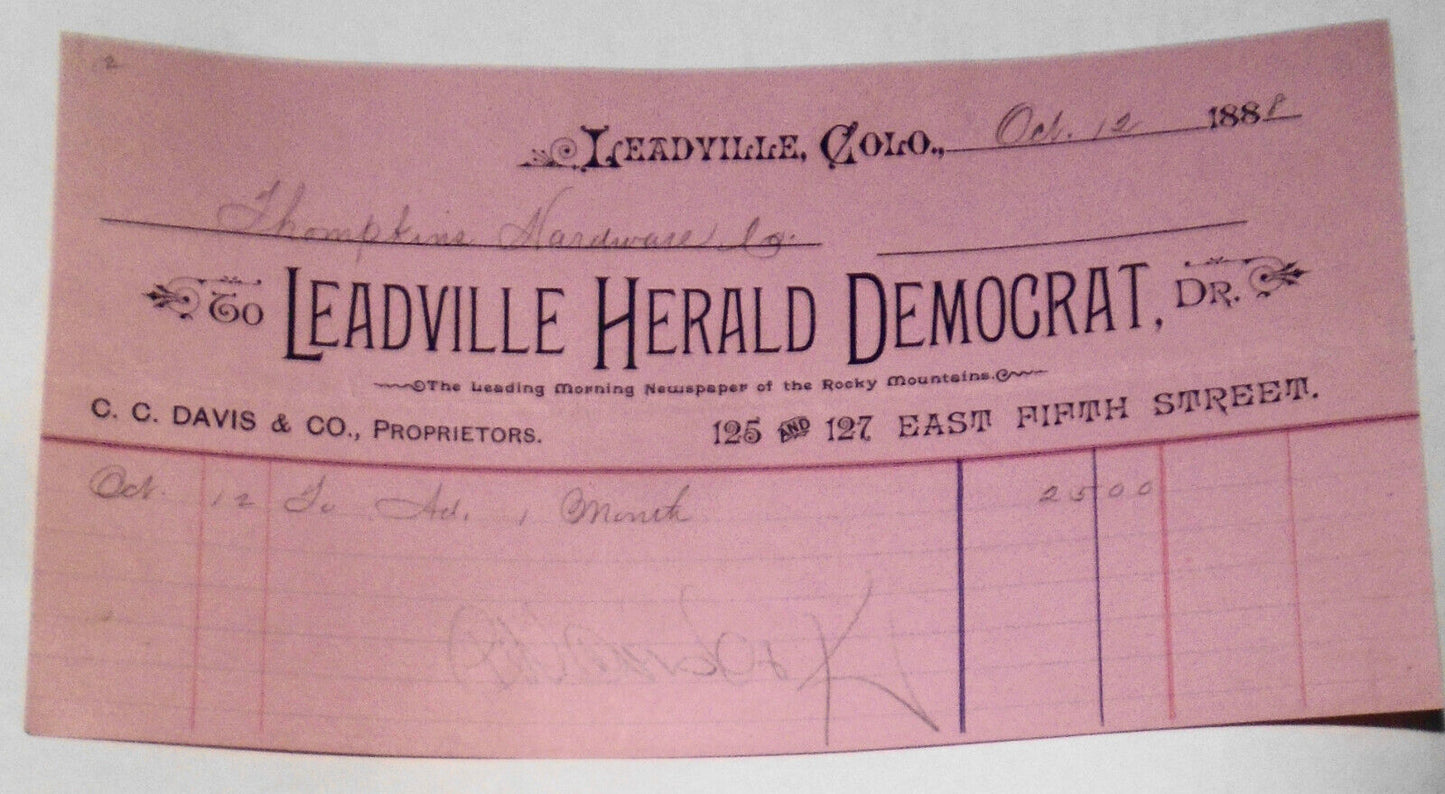 2
LEADVILLE, COLO., Oct. 12 1888
Thompkins Hardware Co.
TO LEADVILLE HERALD DEMOCRAT, DR.
The Leading Morning Newspaper of the Rocky Mountains.
C. C. DAVIS & CO., PROPRIETORS. 125 AND 127 EAST FIFTH STREET.
Oct. 12 To Ad. 1 Month 25 00